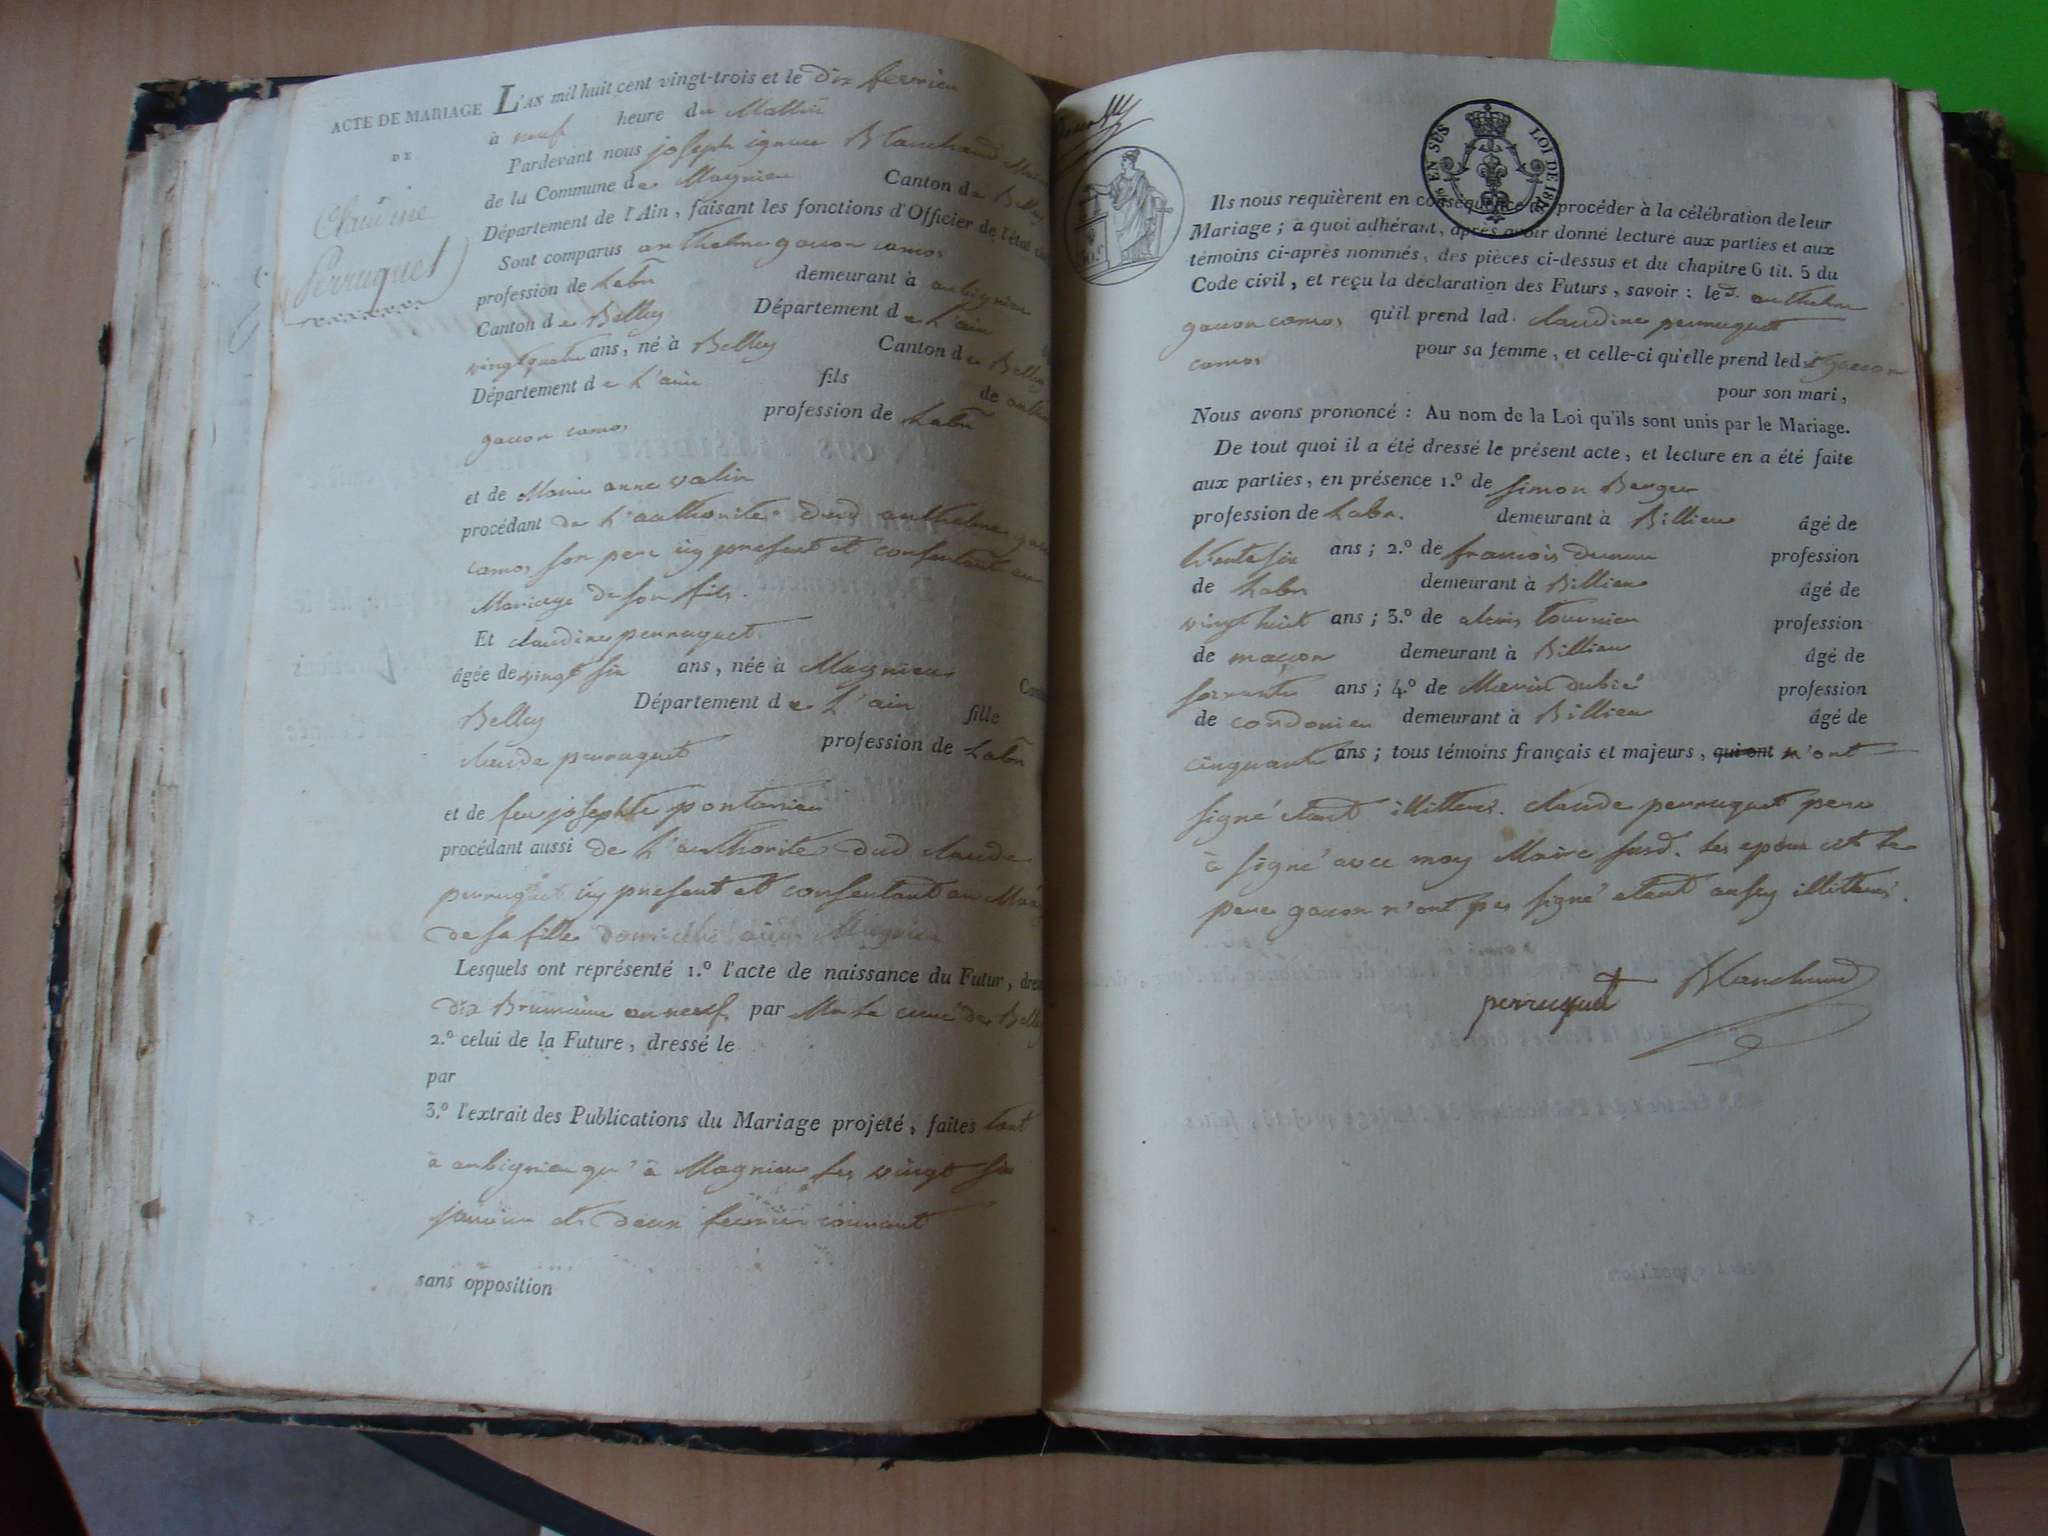 ACTE DE MARIAGE
DE
Claudine
Perruquet
L'AN mil huit cent vingt-trois et le dix fevrier
à neuf heure du Mattin
Pardevant nous joseph ignace Blanchard Maire
de la Commune de Magnieu Canton de Belley
Département de l'Ain, faisant les fonctions d'Officier de l'état
Sont comparus anthelme gacon camos
profession de Labr demeurant à
Canton de Belley Département de L'ain
vingt quatre ans, né à Belley Canton de Belley
Département de L'ain fils de
gacon camos profession de Labr
et de Marie anne valin
procédant de L'authorité dud anthelme
camos son pere icy present et consentant au
Mariage de son fils.
Et claudine perruquet
âgée de vingt six ans, née à Magnieu
Belley Département de L'ain fille
claude perruquet profession de Labr
et de feu josephte
procédant aussi de L'authorité dud claude
perruquet icy present et consentant au
de sa fille domicilié Magnieu
Lesquels ont représenté 1.º l'acte de naissance du Futur,
dix Brumaire an neuf par Mr Le curé de
2.º celui de la Future, dressé le
par
3.º l'extrait des Publications du Mariage projeté, faites tant
à qu'à Magnieu les vingt six
janvier et deux fevrier courant
sans opposition
EN SES LOI DE
Ils nous requièrent en conséquence de procéder à la célébration de leur
Mariage ; à quoi adhérant, après avoir donné lecture aux parties et aux
témoins ci-après nommés, des pièces ci-dessus et du chapitre 6 tit. 5 du
Code civil, et reçu la déclaration des Futurs, savoir : led. anthelme
gacon camos qu'il prend lad. claudine perruquet
camos pour sa femme, et celle-ci qu'elle prend led. gacon
pour son mari,
Nous avons prononcé : Au nom de la Loi qu'ils sont unis par le Mariage.
De tout quoi il a été dressé le présent acte, et lecture en a été faite
aux parties, en présence 1.º de Simon Berger
profession de Labr. demeurant à Billieu âgé de
trente six ans ; 2.º de francois profession
de Labr demeurant à Billieu âgé de
vingt huit ans ; 3.º de alexis tournier profession
de maçon demeurant à Billieu âgé de
soixante ans ; 4.º de profession
de cordonier demeurant à Billieu âgé de
cinquante ans ; tous témoins français et majeurs, qui ont n'ont
signé etant illitteré. claude perruquet pere
à signé avec moy Maire susd. les epoux et le
pere gacon n'ont pas signé etant aussy illitteré.
perruquet Blanchard